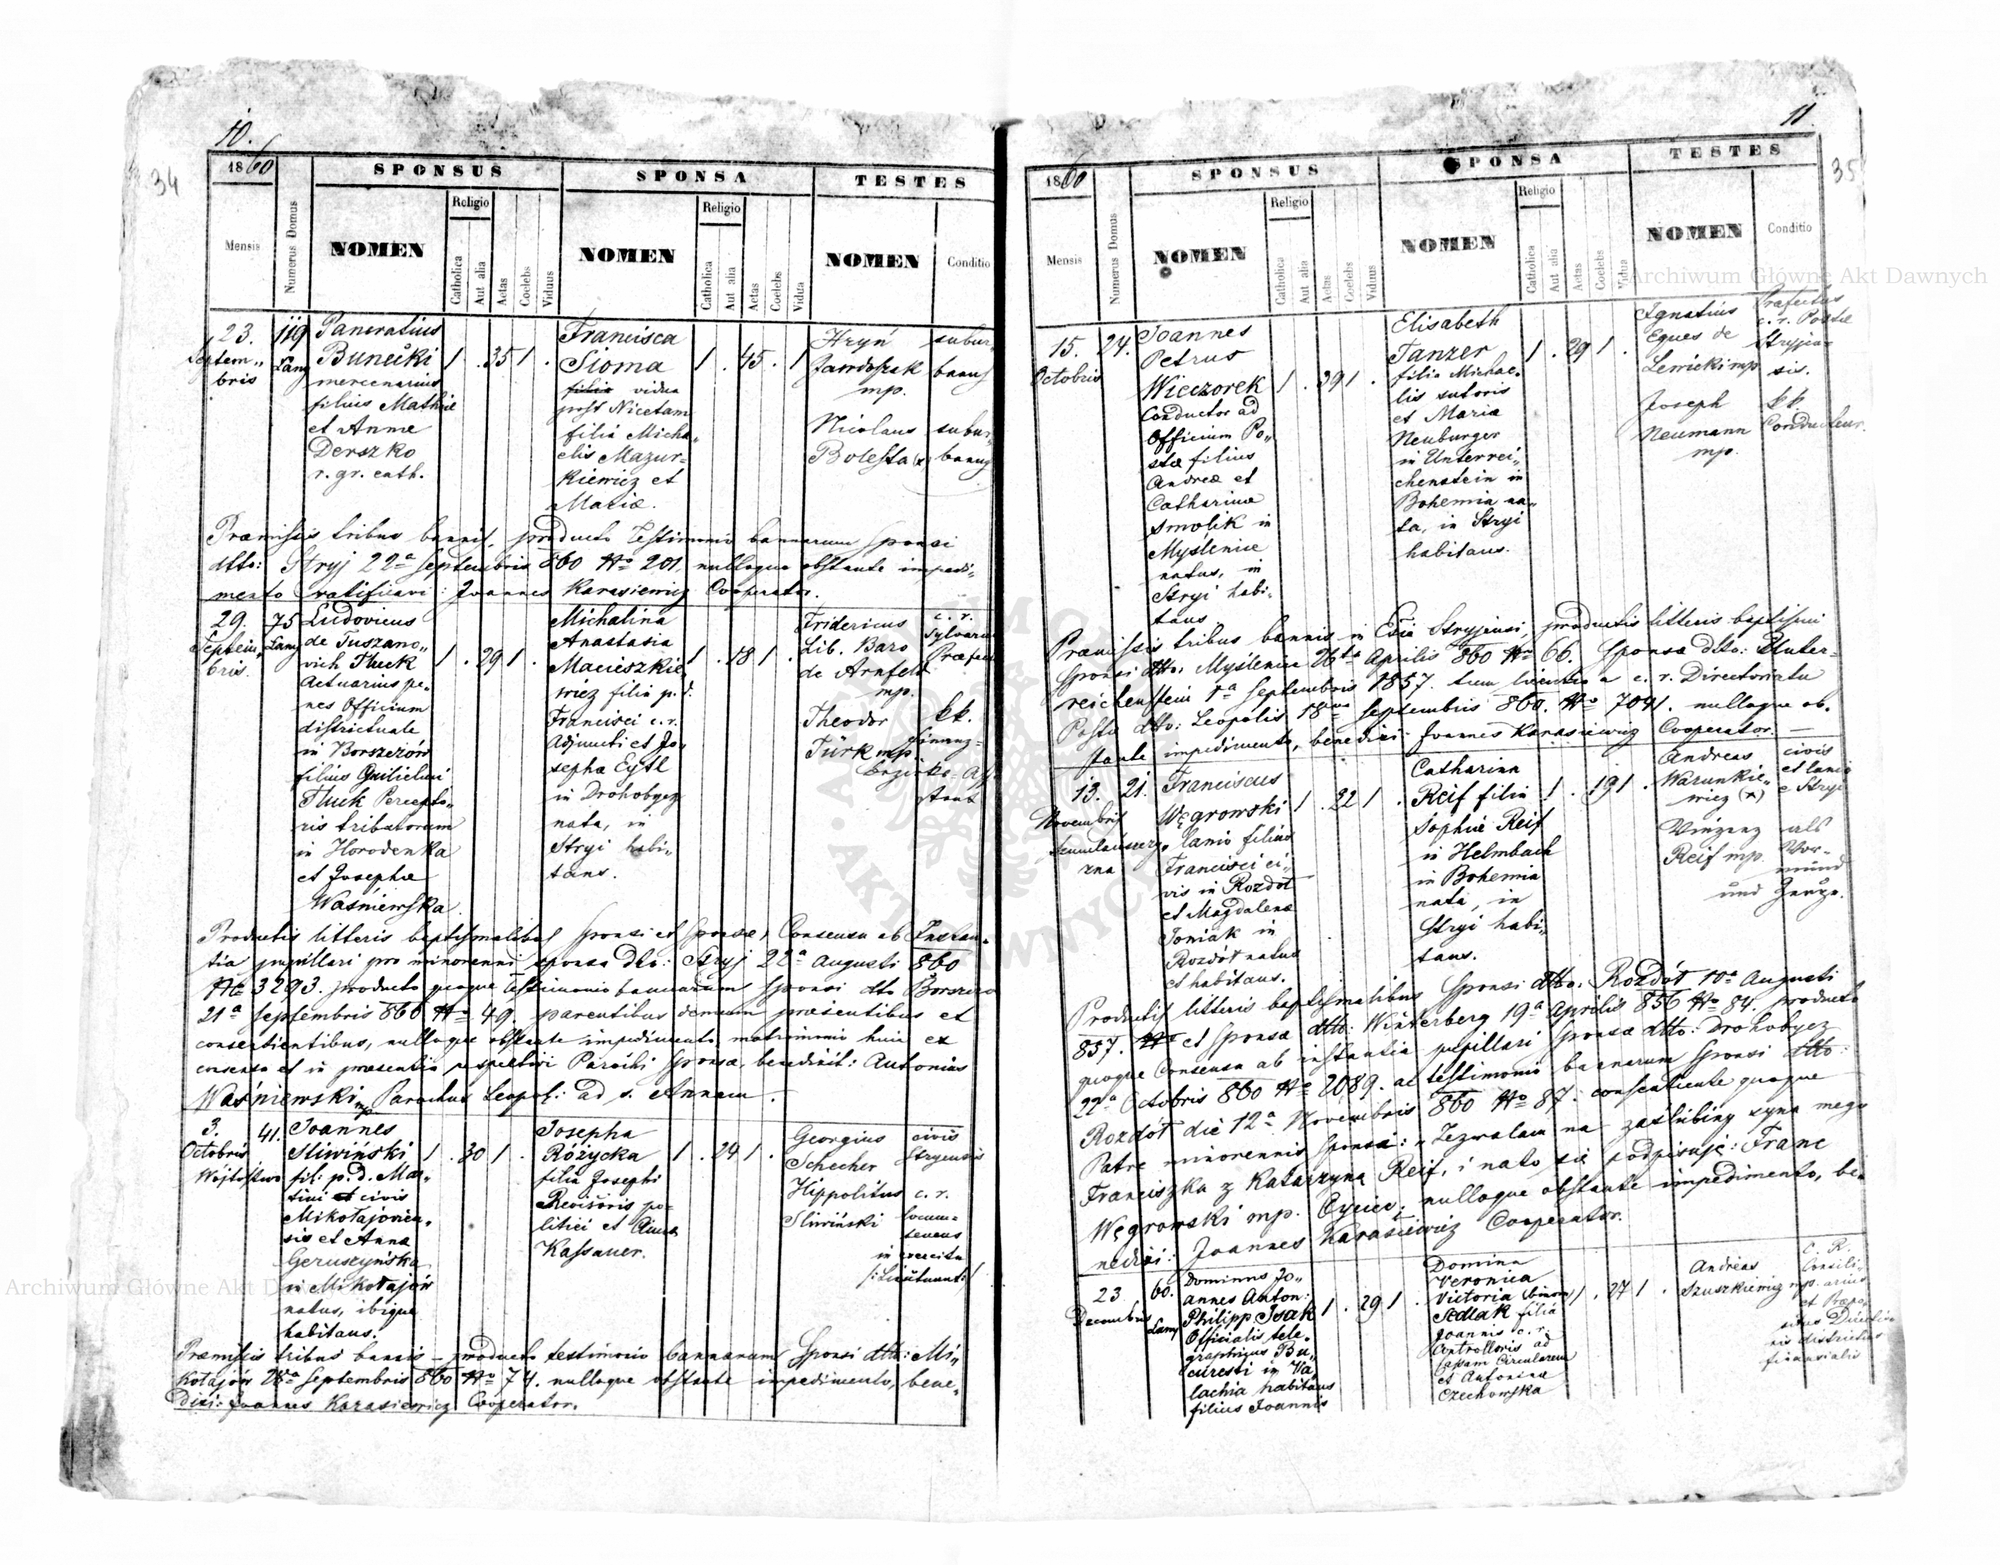 10.
34
1860
SPONSUS
SPONSA
TESTES
Mensis
Numerus Domus
NOMEN
Religio
Catholica
Aut alia
Aetas
Coelebs
Viduus
NOMEN
Religio
Catholica
Aut alia
Aetas
Coelebs
Vidua
NOMEN
Conditio
23.
Septem„
bris
119
Lany
Pancratius
Buneĉki
mercenarius
filius Mathiæ
et Annæ
Derszko
r. gr. cath.
1 . 35 1 .
Francisca
Sioma
filia vidua
post Nicetam
filia Micha„
elis Mazur-
kiewicz et
Mariæ.
1 . 45 . 1
Hryń
mp.
subur„
banus
Nicolaus
Bolesta (x)
subur„
banus
Præmissis tribus bannis, producto Testimonio bannorum Sponsi
dtto: Stryj 22ª Septembris 860 No 201. nulloque obstante impedi„
mento ratificavi: Joannes Karasiewicz Cooperator.
29.
Septem„
bris.
75
Lany
Ludovicus
de Tuszano„
vich Fluck
Actuarius pe„
nes Officium
districtuale
in Borszczów
filius Guilielmi
Fluck Percepto„
ris tributorum
in Horodenka
et Josephæ
Waśniewska.
1 . 29 1 .
Michalina
Anastasia
Macieszkie
wicz filia p. d.
Francisci c. r.
Adjuncti et Jo„
sepha Eytl
in Drohobycz
nata, in
Stryi habi„
tans.
1 . 18 1 .
Fridericus
Lib. Baro
de Arnfeld
mp.
c. r.
Sylvarum
Præfec
Theodor
Türk mp
kk.
Finanz-
Bezirks-
Productis litteris baptismalibus Sponsi et Sponsæ, Consensu ab Instan„
tia pupillari pro minorenni sponsa dto: Stryj 22ª Augusti 860
No 3293. producto quoque testimonio bannorum Sponsi dto Borszczó
21ª Septembris 860 No 49. parentibus demum præsentibus et
consentientibus, nulloque obstante impedimento, matrimonio huic ex
consensu et in præsentia respectivi Parochi Sponsæ, benedixit: Antonius
Waśniewski mp Parochus Leopol: ad s. Annam.
3.
Octobris
Wójtostwo
41.
Joannes
Sliwiński
fil: p. d. Mar„
tini et civis
Mikołajovien„
sis et Anna
Geruszyńska
in Mikołajów
natus, ibique
habitans.
1 . 30 1 .
Josepha
Różycka
filia Josephi
Revisoris po„
litici et Annæ
Kassauer.
1 . 24 1 .
Georgius
Schecher
civis
Stryensis
Hippolitus
Sliwiński
c. r.
locum„
tenens
in exercitu
/: Lieutenant :/
Præmissis tribus bannis – producto testimonio bannorum Sponsi dto: Mi„
kołajów 28ª Septembris 860 No 74. nulloque obstante impedimento, bene„
dixi: Joannes Karasiewicz Cooperator.
11
35
1860
SPONSUS
SPONSA
TESTES
Mensis
Numerus Domus
NOMEN
Religio
Catholica
Aut alia
Aetas
Coelebs
Viduus
NOMEN
Religio
Catholica
Aut alia
Aetas
Coelebs
Vidua
NOMEN
Conditio
15.
Octobris
24.
Joannes
Petrus
Wieczorek
Conductor ad
Officium Po„
stæ filius
Andreæ et
Catharinæ
Smolik in
Myślenice
natus, in
Stryi habi„
tans
1 . 29 1 .
Elisabeth
Tanzer
filia Michae„
lis sutoris
et Maria
Neuburger
in Unterrei„
chenstein in
Bohemia na„
ta, in Stryi
habitans.
1 . 29 1 .
Ignatius
Eques de
Lewicki mp
Præfectus
c. r. Postæ
Stryjen„
sis.
Joseph
Neumann
mp.
kk
Conducteur.
Præmissis tribus bannis in Ecclia Stryjensi, productis litteris baptismi
Sponsi dtto. Myślenice 26ta Aprilis 860 No 66. Sponsæ dtto: Unter-
reichenstein 1ª Septembris 1857. tum licentia a c. r. Directoriatu
Postæ dtto: Leopolis 18va Septembris 860. No 7091. nulloque ob„
stante impedimento, benedixi: Joannes Karasiewicz Cooperator.
13.
Novembris
21.
Franciscus
Węgrowski
lanio filius
Francisci ci„
vis in Rozdół
et Magdalenæ
Toniak in
Rozdół natus
et habitans.
1 . 22 1 .
Catharina
Reif filia
Sophiæ Reif
in Helmbach
in Bohemia
nata, in
Stryi habi„
tans.
1 . 19 1 .
Andreas
Warunkie„
wicz (x)
civis
et lanio
e Stryi
Vinzenz
Reif mp.
als
Vor„
mund
und Zeuge.
Productis litteris baptismalibus Sponsi dtto: Rozdół 10ª Augusti
857. No et Sponsæ dtto: Winterberg 19ª Aprilis 856 No 84. producto
quoque Consensu ab instantia pupillari Sponsæ dtto: Drohobycz
22ª Octobris 860 No 2089. ac testimonio bannorum Sponsi dtto:
Rozdół die 12ª Novembris 860 No 87. consentiente quoque
Patre minorennis Sponsi: „Zezwalam na zaślubiny syna mego
Franciszka z Katarzyną Reif, i na to się podpisuję: Franc
Węgrowski mp. Oyciec, nulloque obstante impedimento, be„
nedixi: Joannes Karasiewicz Cooperator.
23
Decembris
60.
Lany
Dominus Jo„
annes Anton:
Philipp Isak
Officialis tele„
graphicus Bu„
curesti in Va„
lachia habitans
filius Joannis
1 . 29 1 .
Domina
Veronica
Victoria binom
Sedlak filia
Joannis c. r.
Controlloris ad
Cassam Circularem
et Antonina
Czechowska
1 . 27 1 .
Andreas
Szuszkiewicz mp.
C. R.
Consili„
arius
et Præpo„
situs Directio
nis districtus
financialis
Archiwum Główne Akt Dawnych
Archiwum Główne Akt Dawnych